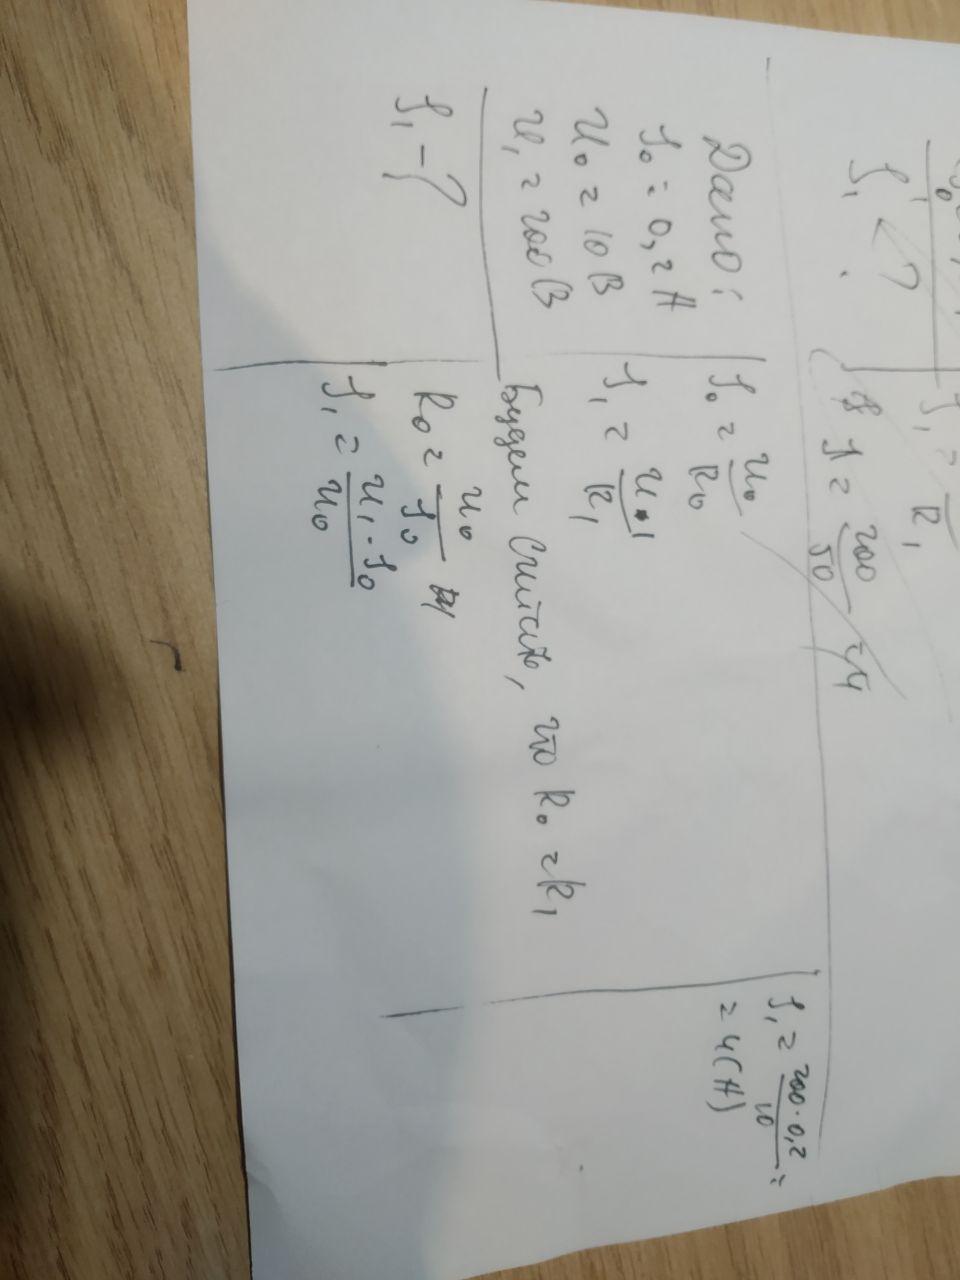 I₁ - ?
R₁
I = 200/50 = 4
Дано:
I₀ = 0,2 А
U₀ = 10 В
U₁ = 200 В
I₁ - ?
I₀ = U₀/R₀
I₁ = U₁/R₁
Будем считать, что R₀ = R₁
R₀ = U₀/I₀
I₁ = U₁·I₀/U₀
I₁ = 200·0,2/10 =
= 4(А)